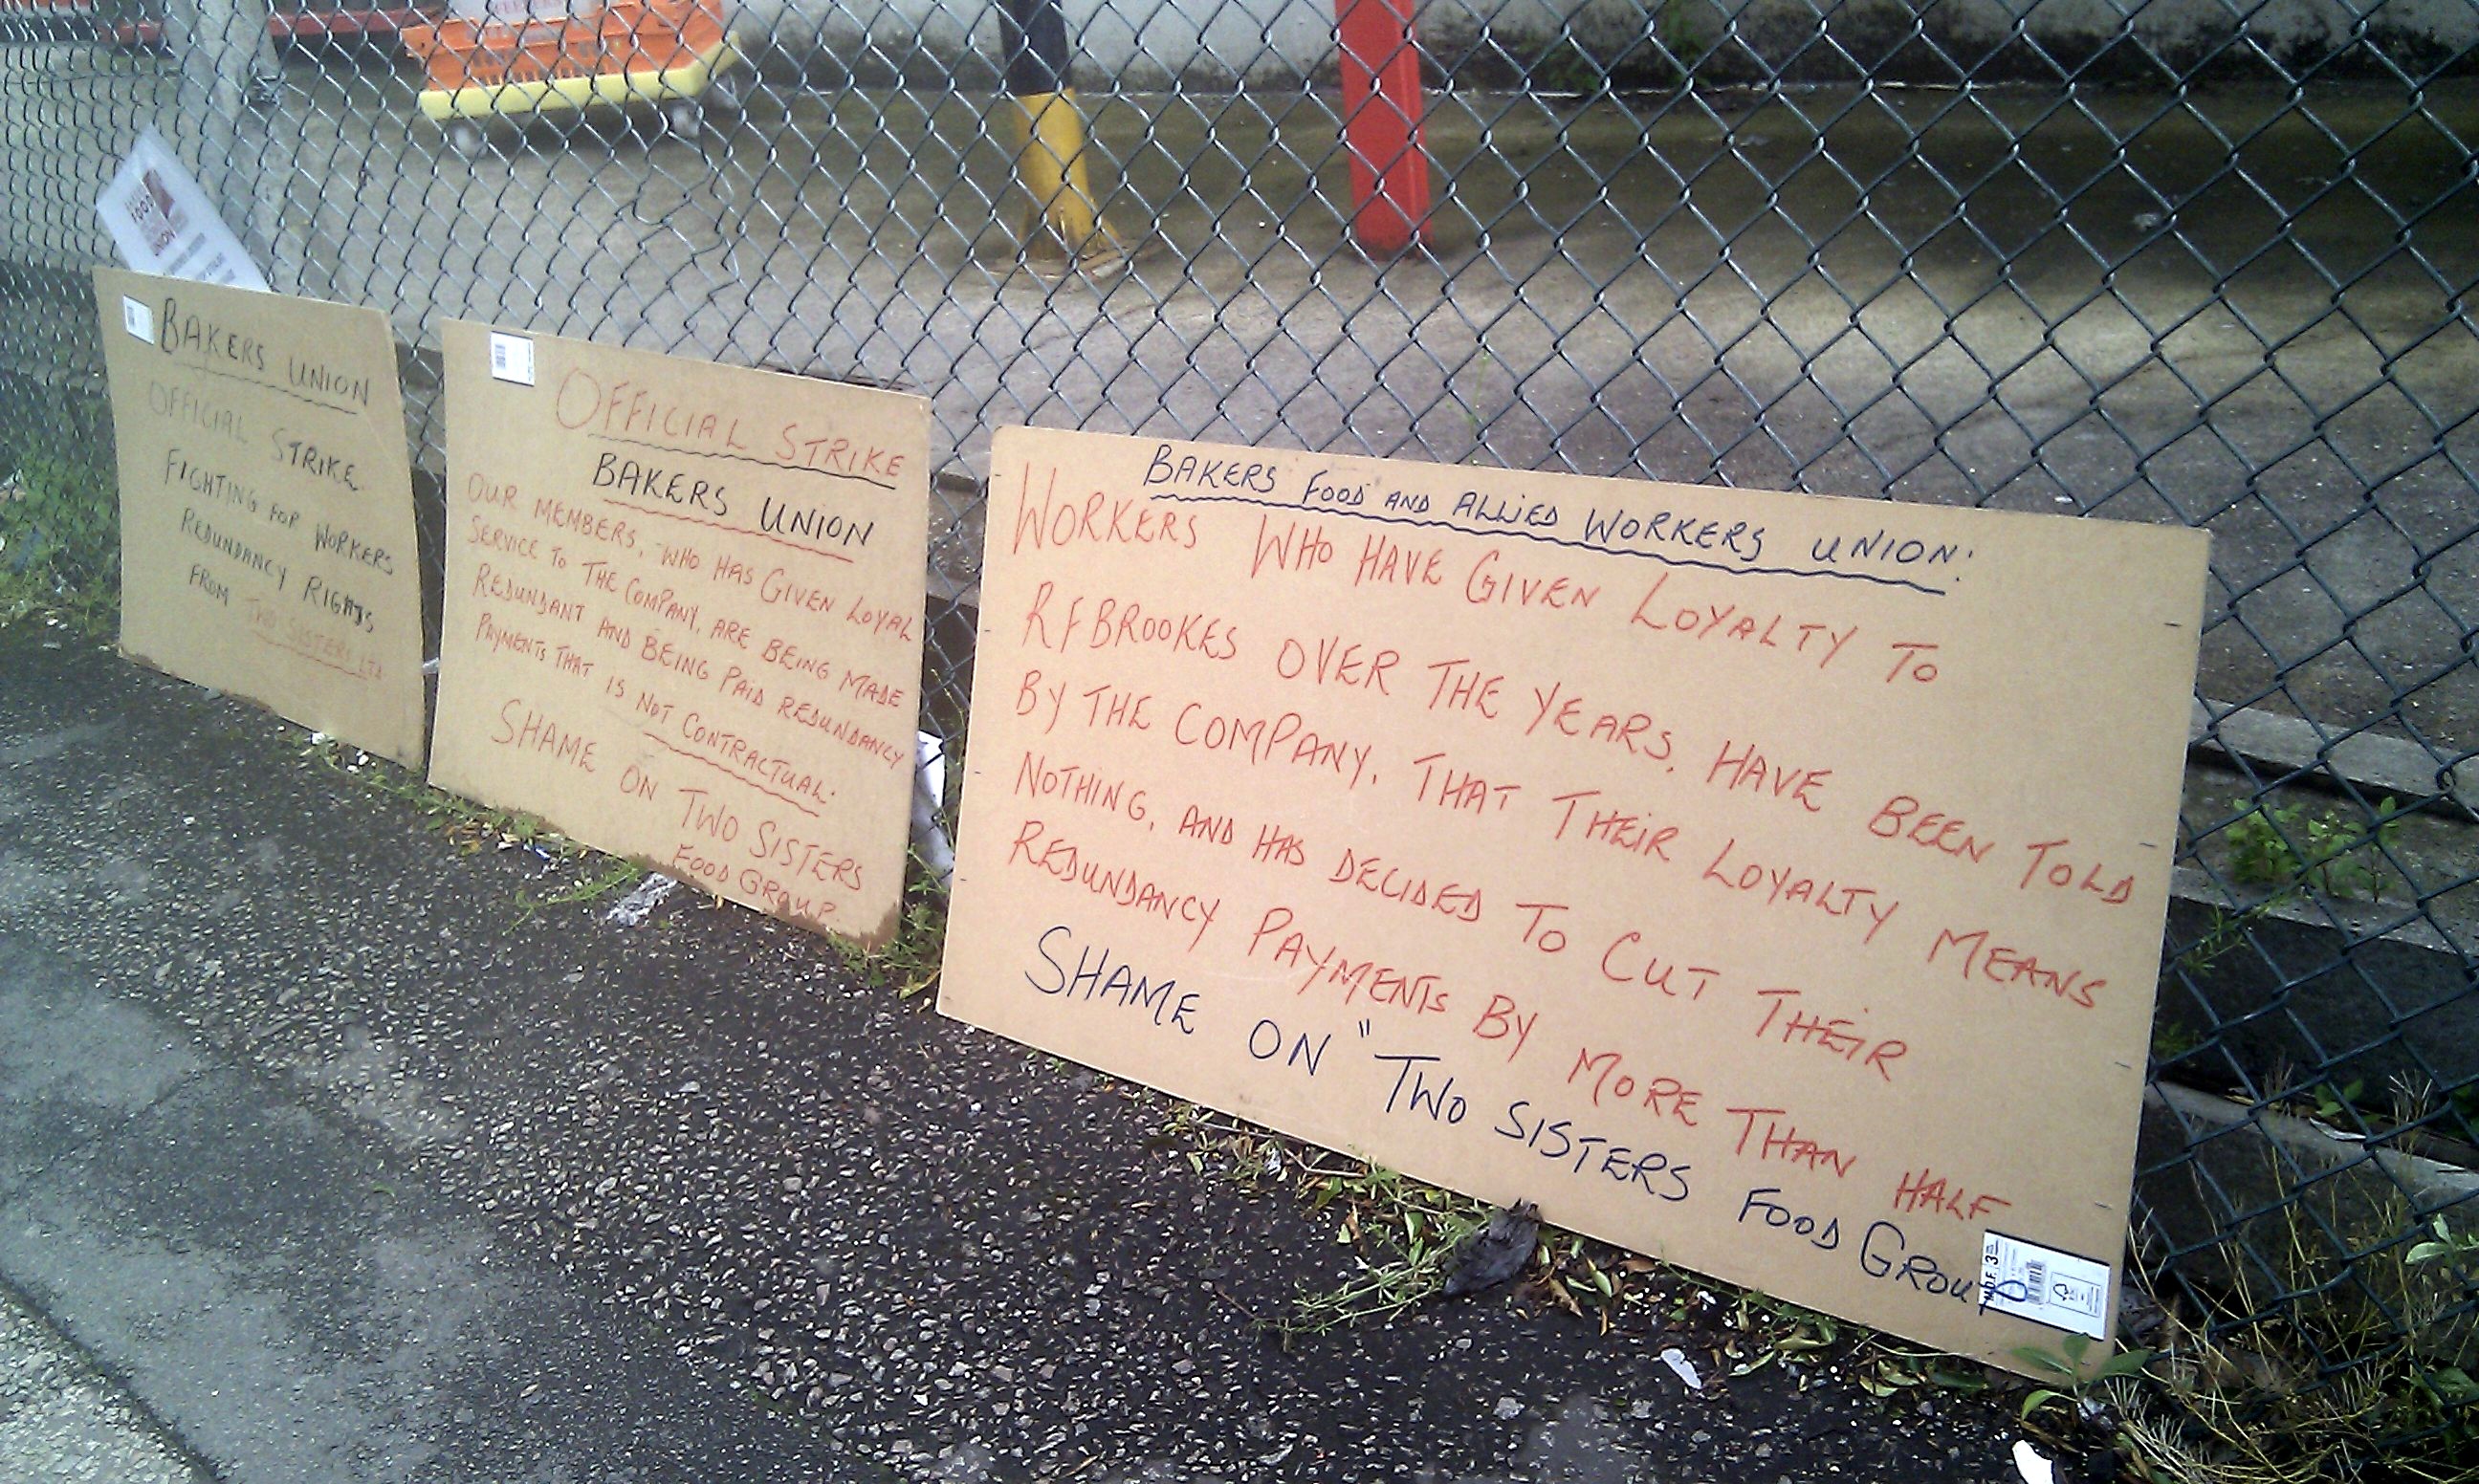 FOOD
UNION
BAKERS UNION
OFFICIAL STRIKE
FIGHTING FOR WORKERS
REDUNDANCY RIGHTS
FROM TWO SISTERS LTD
OFFICIAL STRIKE
BAKERS UNION
OUR MEMBERS, WHO HAS GIVEN LOYAL
SERVICE TO THE COMPANY, ARE BEING MADE
REDUNDANT AND BEING PAID REDUNDANCY
PAYMENTS THAT IS NOT CONTRACTUAL.
SHAME ON TWO SISTERS
FOOD GROUP.
BAKERS FOOD AND ALLIED WORKERS UNION:
WORKERS WHO HAVE GIVEN LOYALTY TO
RFBROOKES OVER THE YEARS, HAVE BEEN TOLD
BY THE COMPANY, THAT THEIR LOYALTY MEANS
NOTHING, AND HAS DECIDED TO CUT THEIR
REDUNDANCY PAYMENTS BY MORE THAN HALF
SHAME ON "TWO SISTERS FOOD GROUP
M.D.F. 3